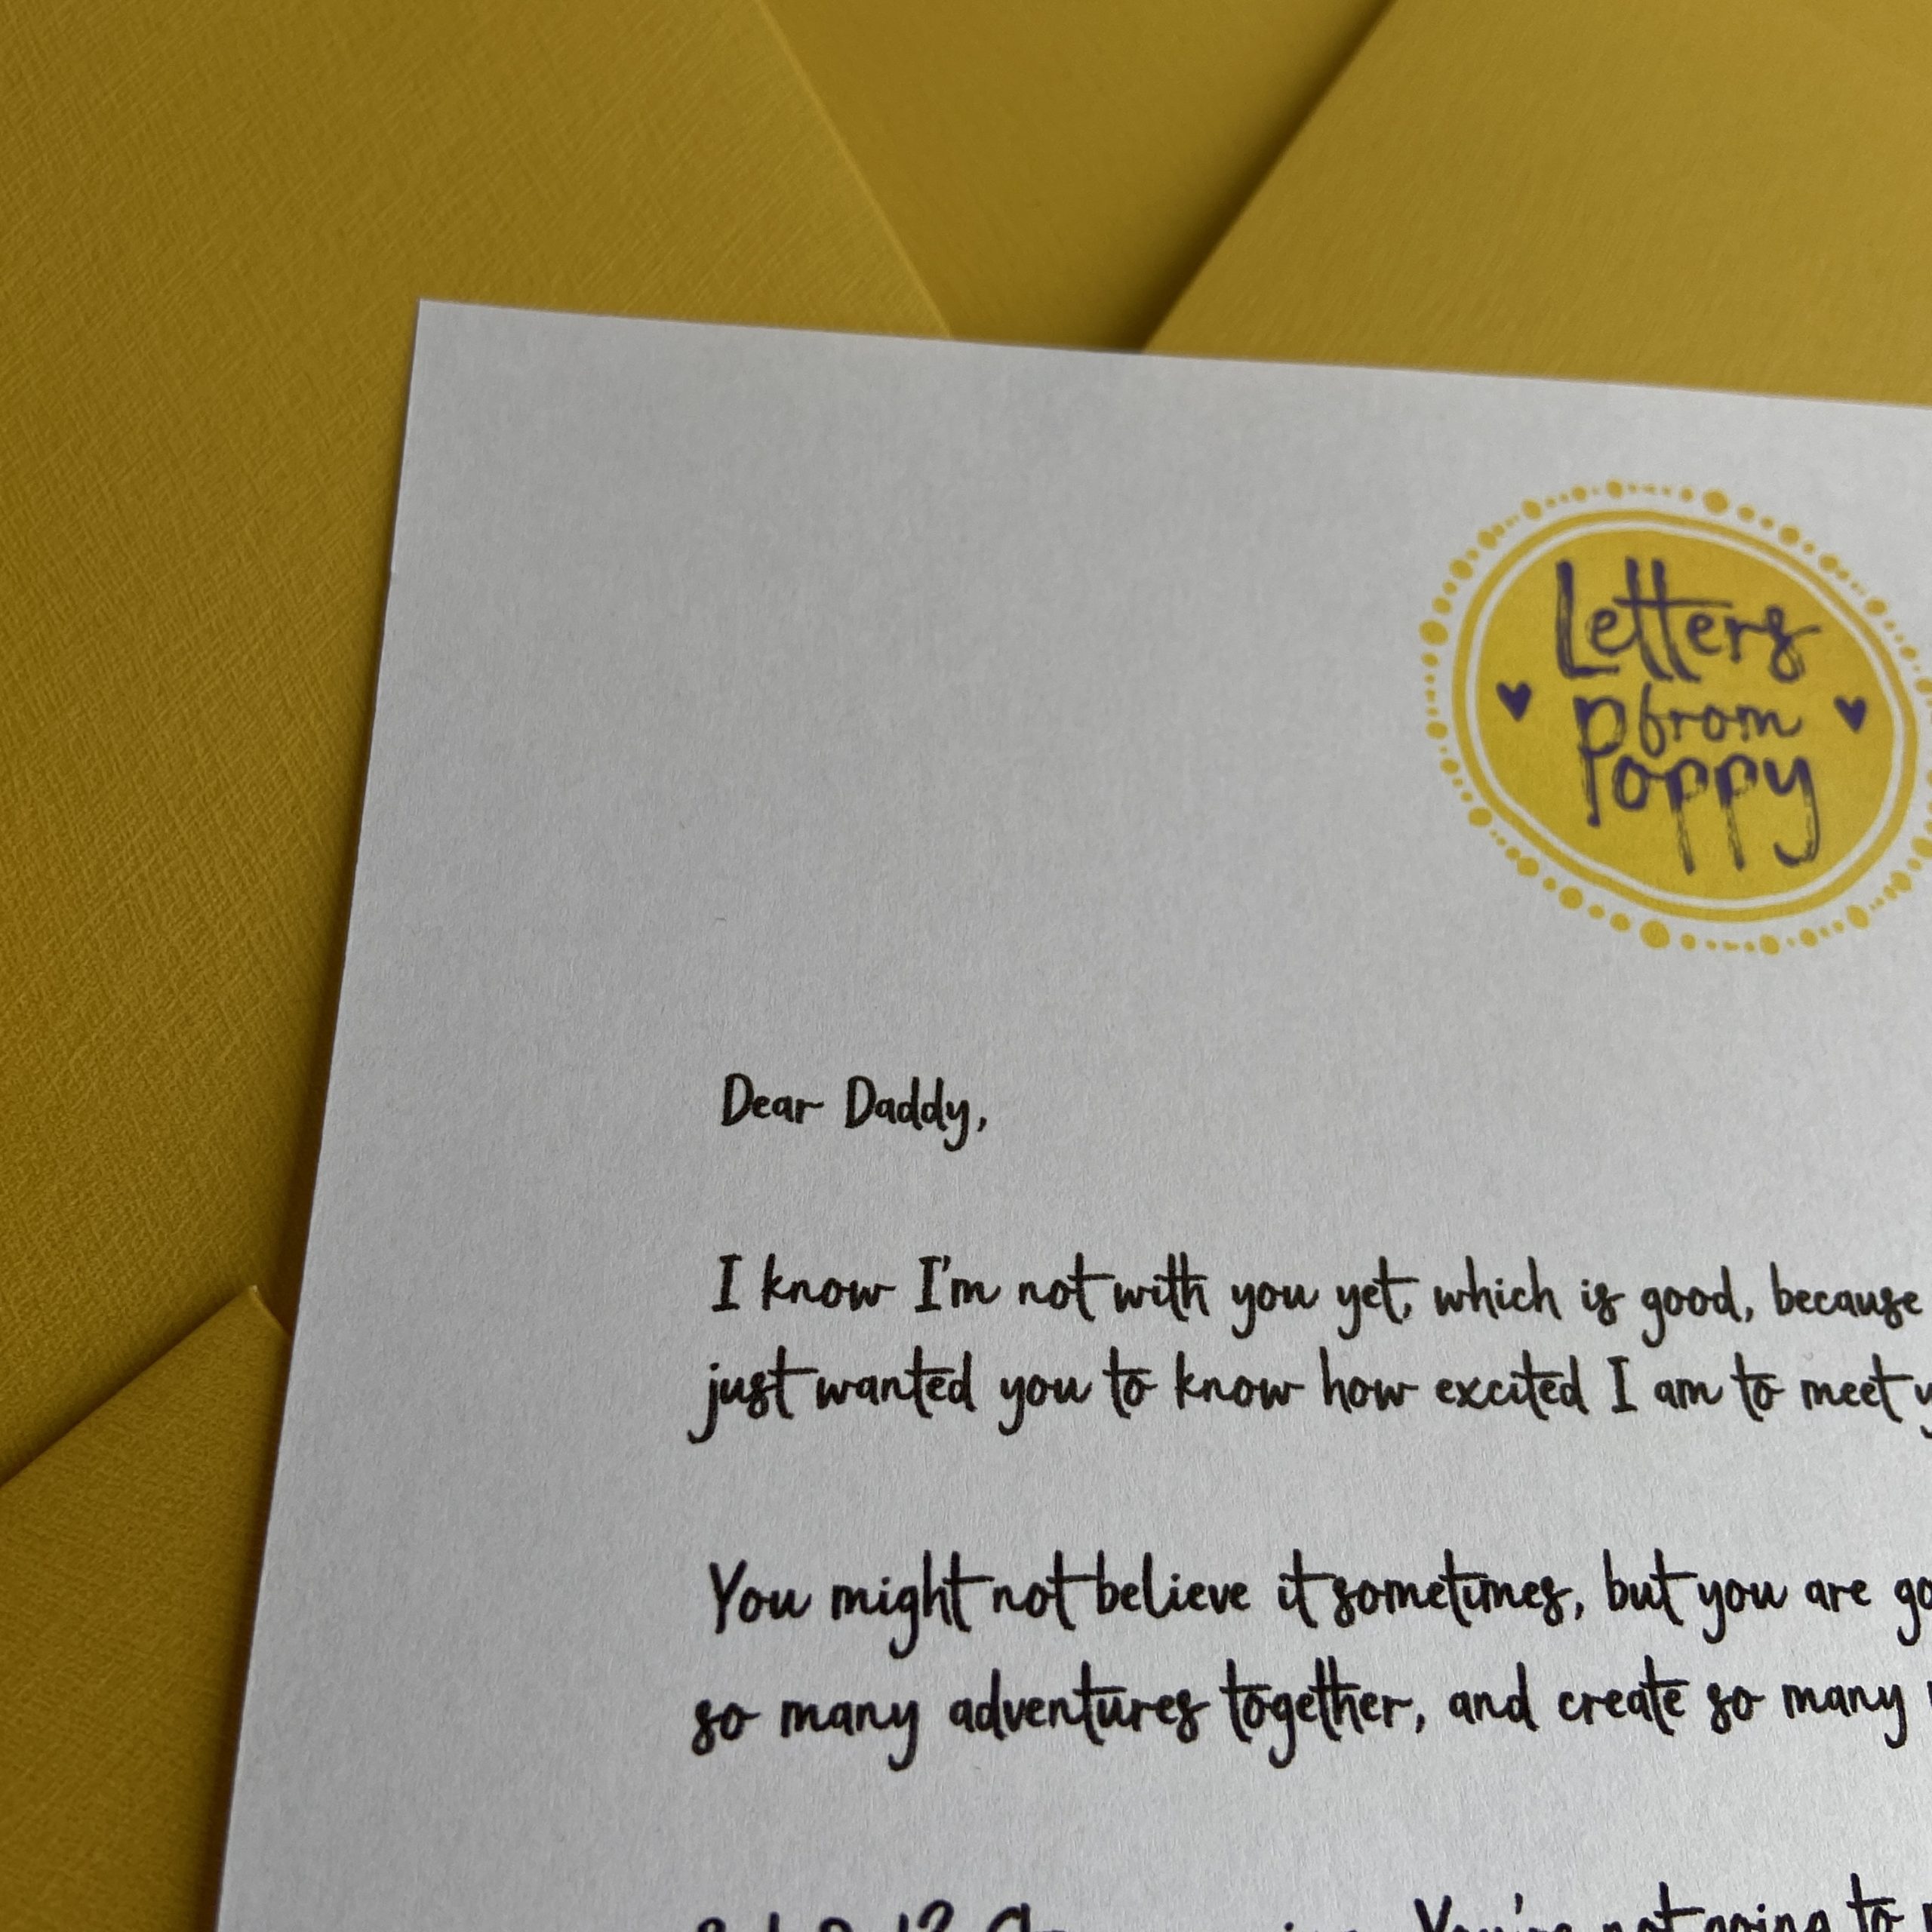 Letters
from
Poppy
Dear Daddy,
I know I'm not with you yet, which is good, because
just wanted you to know how excited I am to meet
You might not believe it sometimes, but you are
so many adventures together, and create so many
You're not going to